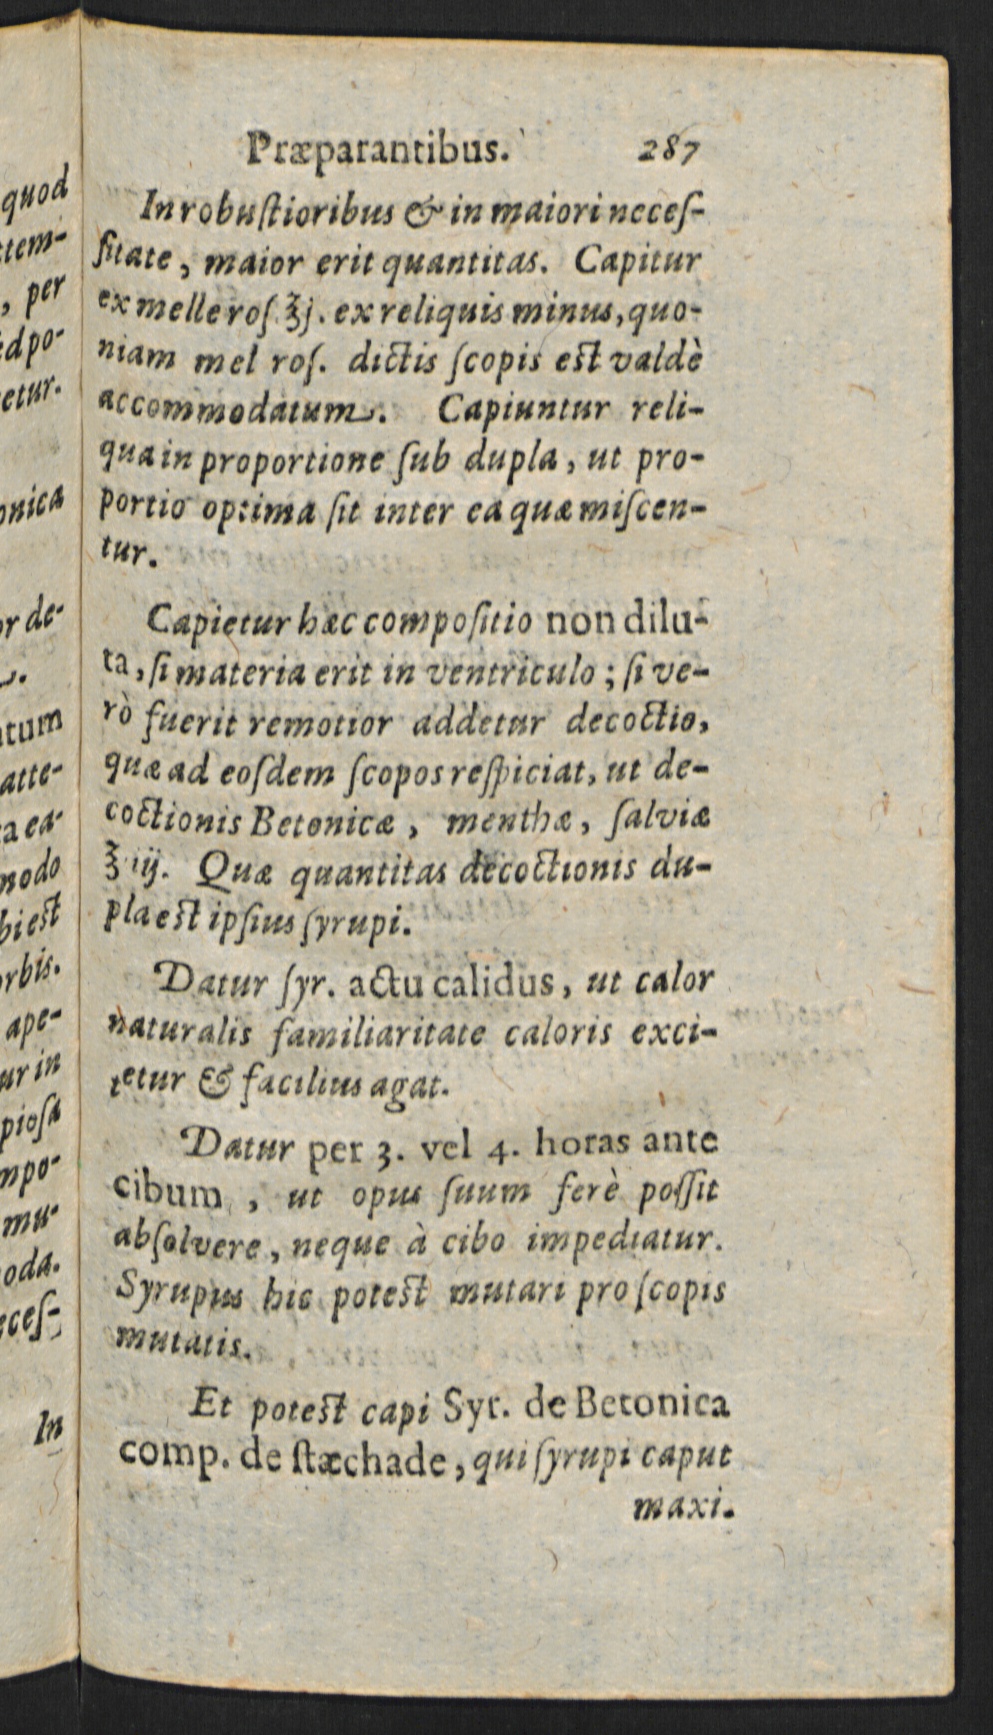 quod
ttem-
, per
ed po-
etur.
onica
or de-
atum
atte-
ta ea-
modo
bi est
orbis.
ape-
ur in
piosa
mpo-
mu-
oda.
eceſ-
In
Præparantibus. 287
In robuſtioribus & in maiori neceſ-
ſitate, maior erit quantitas. Capitur
ex melle roſ ℥j. ex reliquis minus, quo-
niam mel roſ. dictis ſcopis eſt valdè
accommodatum. Capiuntur reli-
qua in proportione ſub dupla, ut pro-
portio optima ſit inter ea quæ miſcen-
tur.
Capietur hæc compoſitio non dilu-
ta, ſi materia erit in ventriculo; ſi ve-
rò fuerit remotior addetur decoctio,
quæ ad eoſdem ſcopos reſpiciat, ut de-
coctionis Betonicæ, menthæ, ſalviæ
℥ iij. Quæ quantitas decoctionis du-
pla eſt ipſius ſyrupi.
Datur ſyr. actu calidus, ut calor
naturalis familiaritate caloris exci-
tetur & facilius agat.
Datur per 3. vel 4. horas ante
cibum, ut opus ſuum ferè poſſit
abſolvere, neque à cibo impediatur.
Syrupus hic poteſt mutari pro ſcopis
mutatis.
Et poteſt capi Syr. de Betonica
comp. de ſtæchade, qui ſyrupi caput
maxi.